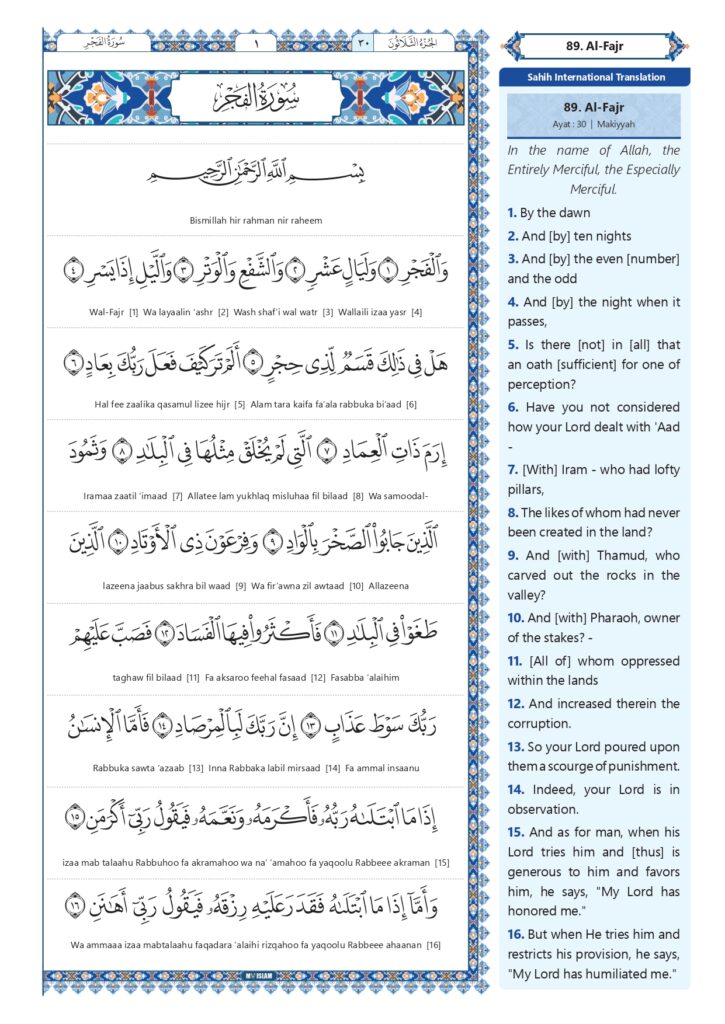 سُورَةُ الفَجْرِ
١
٣٠
الجُزْءُ الثَّلَاثُونَ
سُورَةُ الفَجْرِ
بِسْمِ اللَّهِ الرَّحْمَٰنِ الرَّحِيمِ
Bismillah hir rahman nir raheem
وَالْفَجْرِ ١ وَلَيَالٍ عَشْرٍ ٢ وَالشَّفْعِ وَالْوَتْرِ ٣ وَاللَّيْلِ إِذَا يَسْرِ ٤
Wal-Fajr [1] Wa layaalin 'ashr [2] Wash shaf'i wal watr [3] Wallaili izaa yasr [4]
هَلْ فِي ذَٰلِكَ قَسَمٌ لِّذِي حِجْرٍ ٥ أَلَمْ تَرَ كَيْفَ فَعَلَ رَبُّكَ بِعَادٍ ٦
Hal fee zaalika qasamul lizee hijr [5] Alam tara kaifa fa'ala rabbuka bi'aad [6]
إِرَمَ ذَاتِ الْعِمَادِ ٧ الَّتِي لَمْ يُخْلَقْ مِثْلُهَا فِي الْبِلَٰدِ ٨ وَثَمُودَ
Iramaa zaatil 'imaad [7] Allatee lam yukhlaq misluhaa fil bilaad [8] Wa samoodal-
الَّذِينَ جَابُوا الصَّخْرَ بِالْوَادِ ٩ وَفِرْعَوْنَ ذِي الْأَوْتَادِ ١٠ الَّذِينَ
lazeena jaabus sakhra bil waad [9] Wa fir'awna zil awtaad [10] Allazeena
طَغَوْا فِي الْبِلَٰدِ ١١ فَأَكْثَرُوا فِيهَا الْفَسَادَ ١٢ فَصَبَّ عَلَيْهِمْ
taghaw fil bilaad [11] Fa aksaroo feehal fasaad [12] Fasabba 'alaihim
رَبُّكَ سَوْطَ عَذَابٍ ١٣ إِنَّ رَبَّكَ لَبِالْمِرْصَادِ ١٤ فَأَمَّا الْإِنسَٰنُ
Rabbuka sawta 'azaab [13] Inna Rabbaka labil mirsaad [14] Fa ammal insaanu
إِذَا مَا ابْتَلَىٰهُ رَبُّهُۥ فَأَكْرَمَهُۥ وَنَعَّمَهُۥ فَيَقُولُ رَبِّيٓ أَكْرَمَنِ ١٥
izaa mab talaahu Rabbuhoo fa akramahoo wa na' 'amahoo fa yaqoolu Rabbeee akraman [15]
وَأَمَّآ إِذَا مَا ابْتَلَىٰهُ فَقَدَرَ عَلَيْهِ رِزْقَهُۥ فَيَقُولُ رَبِّيٓ أَهَٰنَنِ ١٦
Wa ammaaa izaa mabtalaahu faqadara 'alaihi rizqahoo fa yaqoolu Rabbeee ahaanan [16]
MY ISLAM
89. Al-Fajr
Sahih International Translation
89. Al-Fajr
Ayat : 30 | Makiyyah
In the name of Allah, the
Entirely Merciful, the Especially
Merciful.
1. By the dawn
2. And [by] ten nights
3. And [by] the even [number]
and the odd
4. And [by] the night when it
passes,
5. Is there [not] in [all] that
an oath [sufficient] for one of
perception?
6. Have you not considered
how your Lord dealt with 'Aad
-
7. [With] Iram - who had lofty
pillars,
8. The likes of whom had never
been created in the land?
9. And [with] Thamud, who
carved out the rocks in the
valley?
10. And [with] Pharaoh, owner
of the stakes? -
11. [All of] whom oppressed
within the lands
12. And increased therein the
corruption.
13. So your Lord poured upon
them a scourge of punishment.
14. Indeed, your Lord is in
observation.
15. And as for man, when his
Lord tries him and [thus] is
generous to him and favors
him, he says, "My Lord has
honored me."
16. But when He tries him and
restricts his provision, he says,
"My Lord has humiliated me."